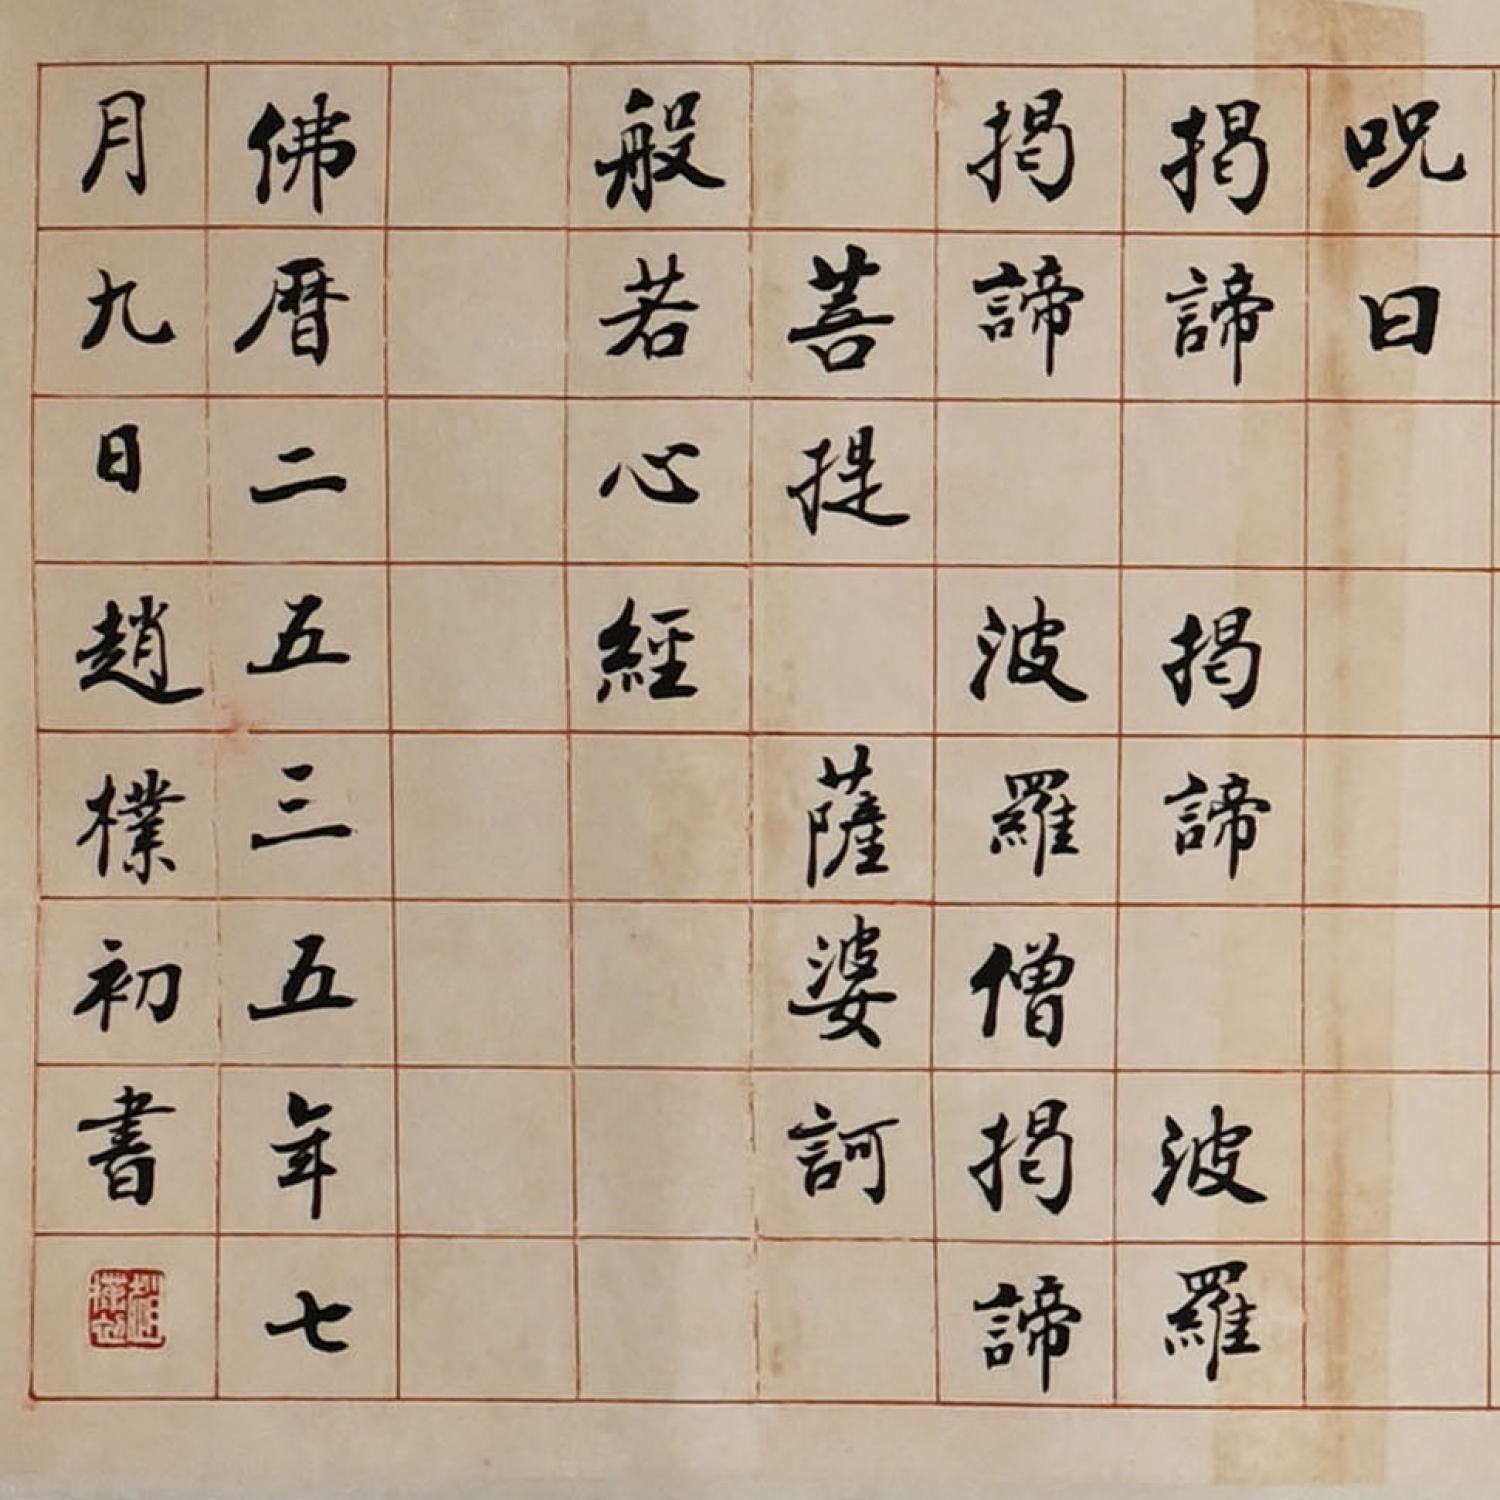 呪曰
揭諦 揭諦 波羅
揭諦 波羅僧揭諦
菩提 薩婆訶
般若心經
佛曆二五三五年七
月九日趙樸初書
趙樸初